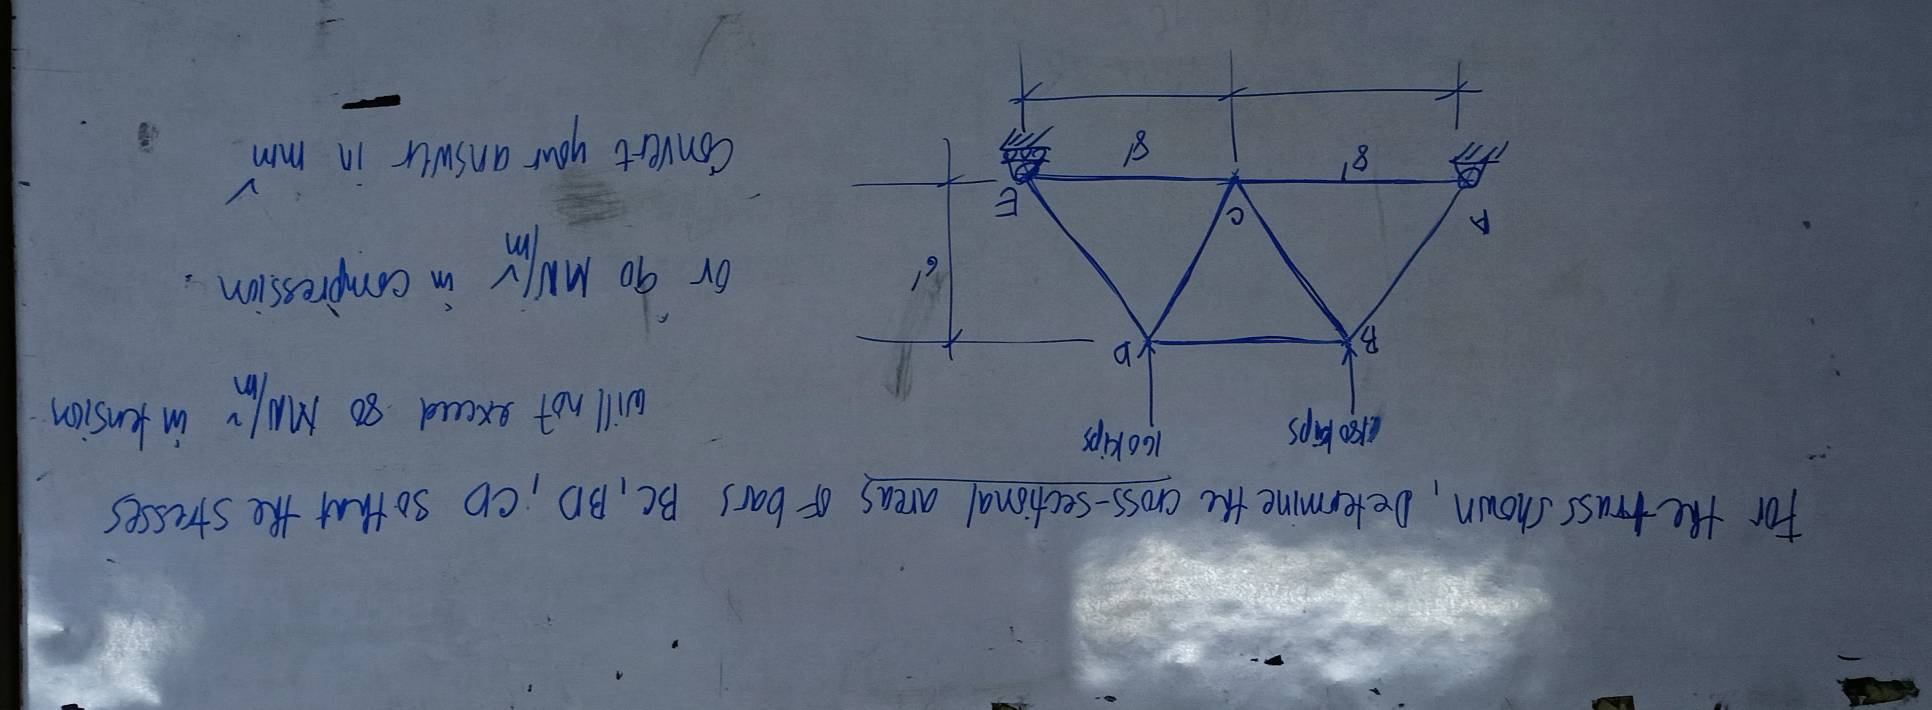 For the truss shown, Determine the cross-sectional areas of bars BC, BD, CD so that the stresses
will not exceed 80 MN/m² in tension
or 90 MN/m² in compression.
Convert your answer in mm²
kips
160 kips
B
D
6'
A
C
E
8'
8'